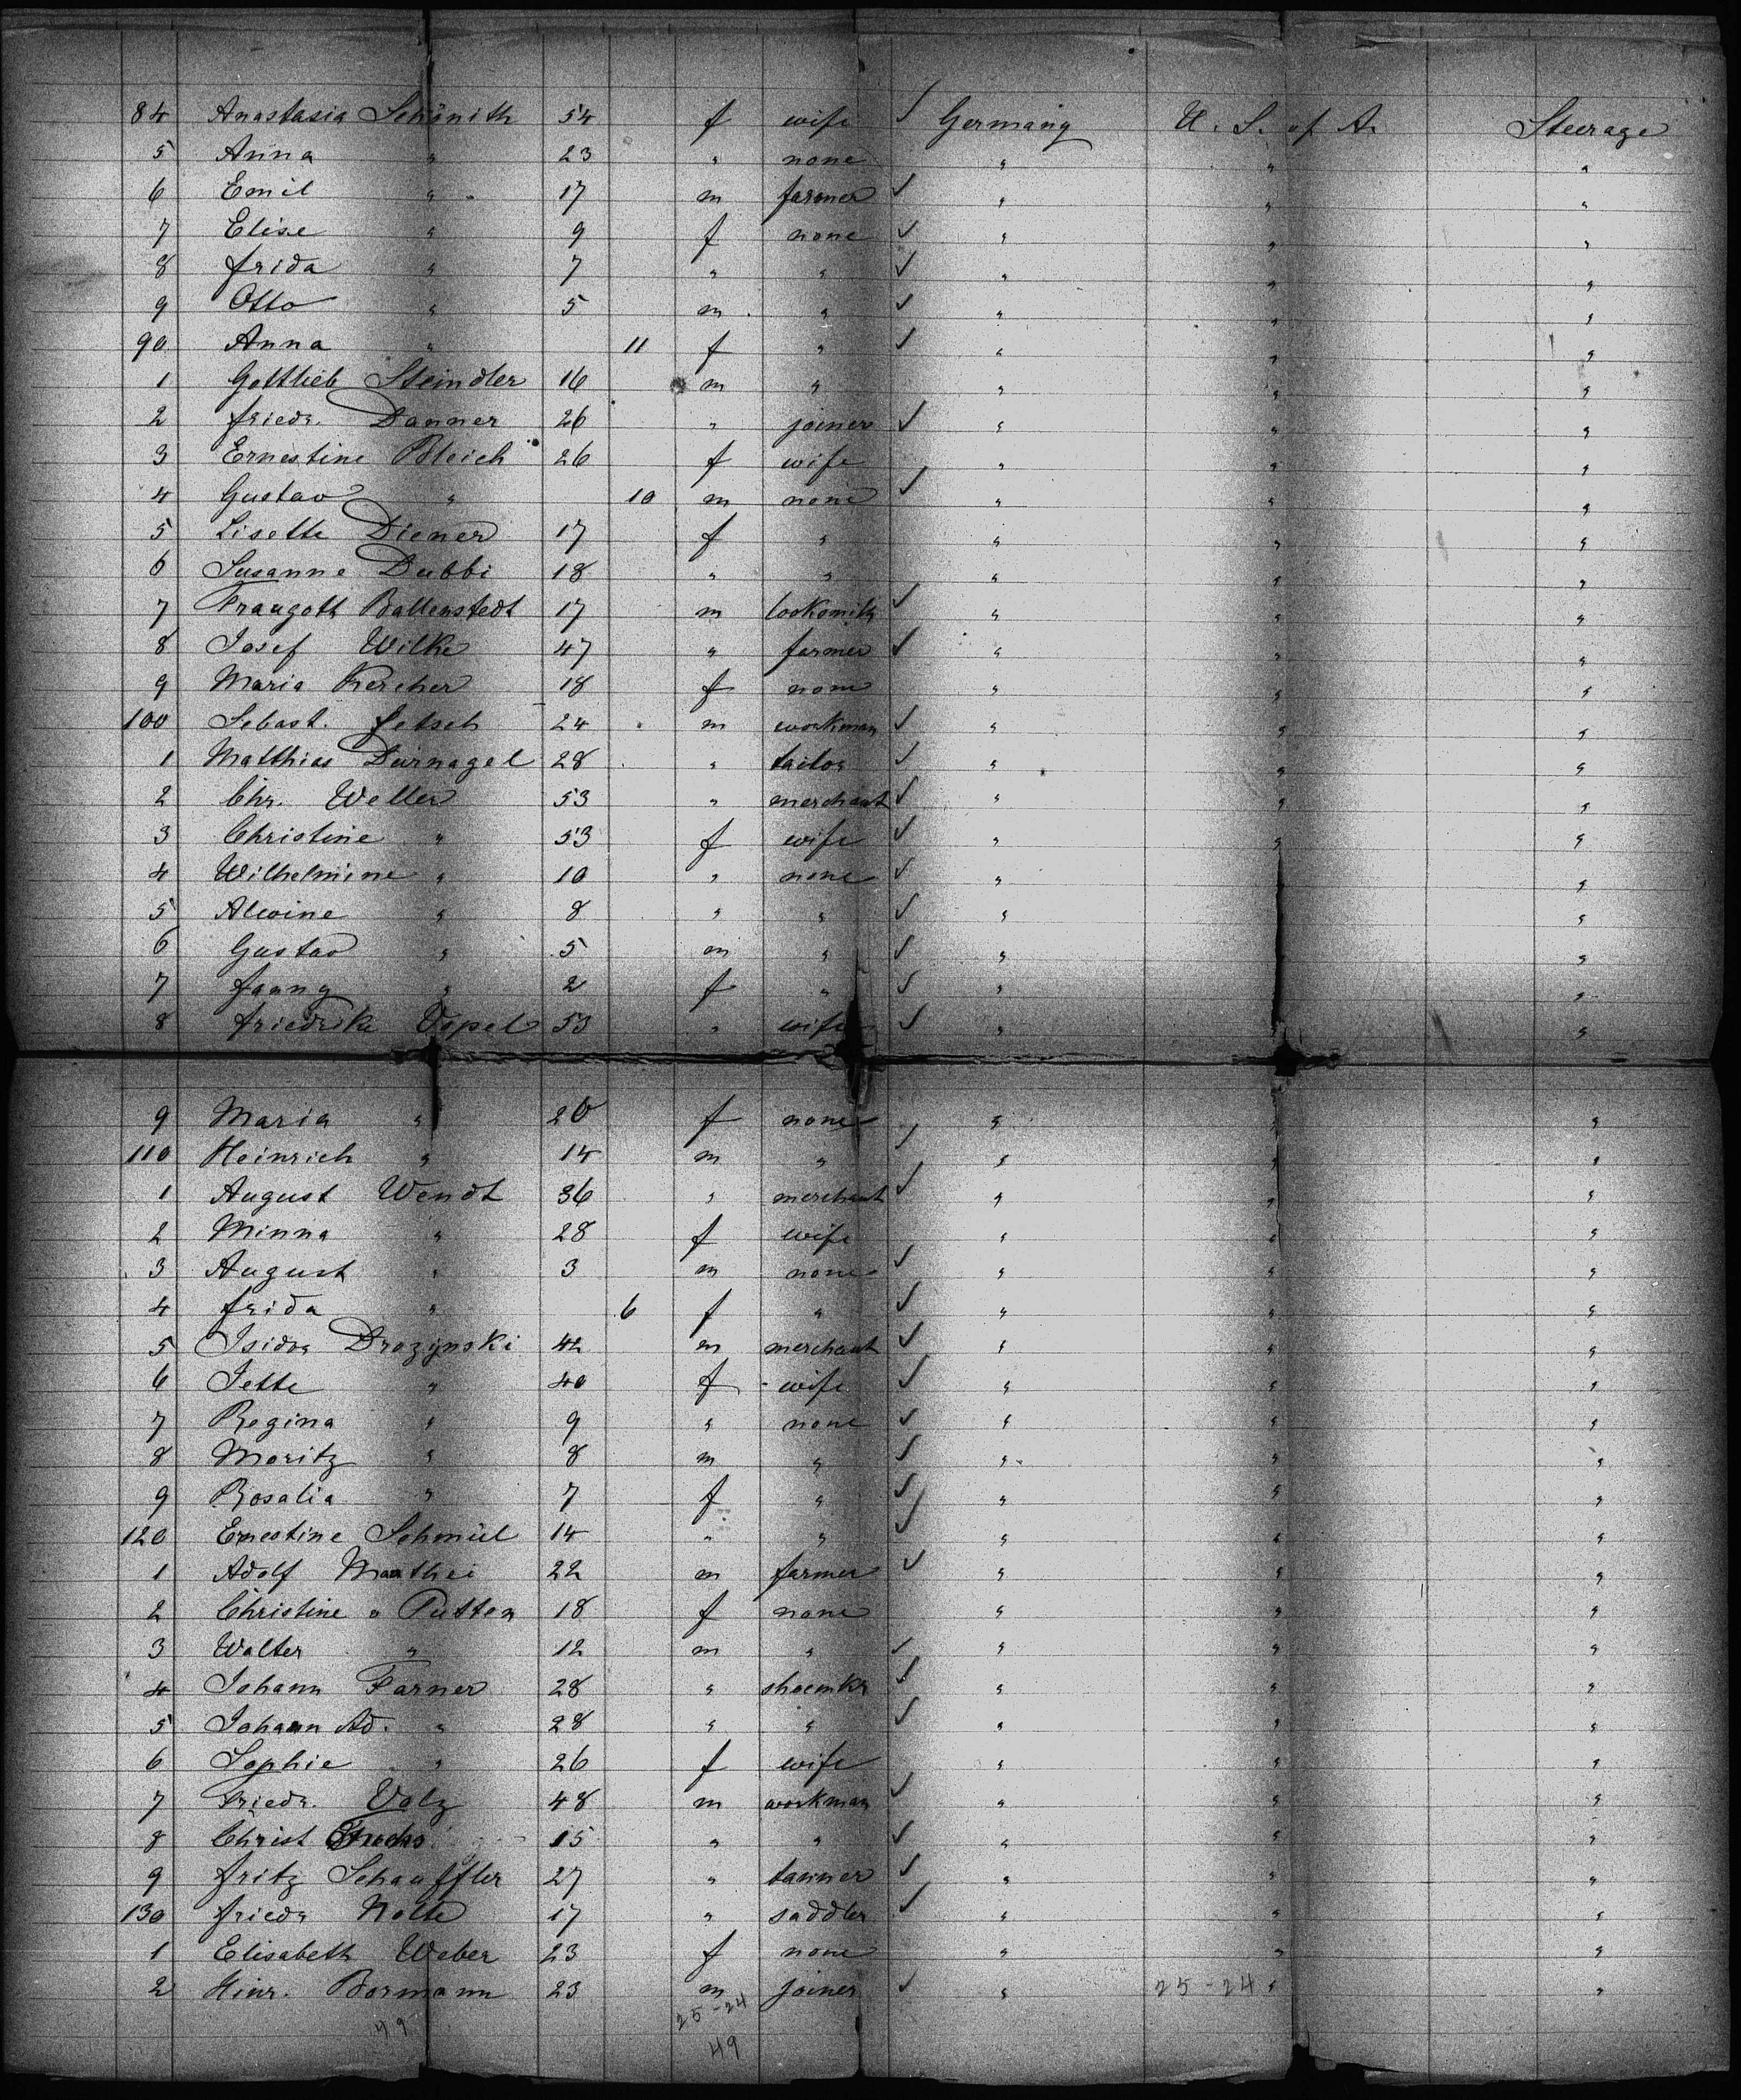 84 Anastasia Schönith 54 f wife ✓ Germany U. S. of A. Steerage
5 Anna " 23 " none " " "
6 Emil " 17 m farmer ✓ " " "
7 Elise " 9 f none ✓ " " "
8 Frida " 7 " " ✓ " " "
9 Otto " 5 m " ✓ " " "
90 Anna " 11 f " ✓ " " "
1 Gottlieb Steindler 16 m " " " "
2 Friedr. Danner 26 " joiner ✓ " " "
3 Ernestine Bleich 26 f wife " " "
4 Gustav " 10 m none ✓ " " "
5 Lisette Diener 17 f " " " "
6 Susanne Dubbi 18 " " " " "
7 Traugott Ballenstedt 17 m locksmith ✓ " " "
8 Josef Wilke 47 " farmer ✓ " " "
9 Maria Kercher 18 f none " " "
100 Sebast. Fetsch 24 m workman ✓ " " "
1 Matthias Dürnagel 28 " tailor ✓ " " "
2 Chr. Weller 53 " merchant ✓ " " "
3 Christine " 53 f wife ✓ " " "
4 Wilhelmine " 10 " none ✓ " " "
5 Alwine " 8 " " ✓ " " "
6 Gustav " 5 m " ✓ " " "
7 Fanny " 2 f " ✓ " " "
8 Friedrike Vopel 53 " wife ✓ " " "
9 Maria " 20 f none " " "
110 Heinrich " 14 m " ✓ " " "
1 August Wendt 36 " merchant ✓ " " "
2 Minna " 28 f wife " " "
3 August " 3 m none ✓ " " "
4 Frida " 6 f " ✓ " " "
5 Isidor Drozynski 42 m merchant ✓ " " "
6 Jette " 40 f wife ✓ " " "
7 Regina " 9 " none ✓ " " "
8 Moritz " 8 m " ✓ " " "
9 Rosalia " 7 f " ✓ " " "
120 Ernestine Schmül 14 " " ✓ " " "
1 Adolf Matthei 22 m farmer ✓ " " "
2 Christine v Putten 18 f none " " "
3 Walter " 12 m " ✓ " " "
4 Johann Farner 28 " shoemkr ✓ " " "
5 Johann Ad. " 28 " " ✓ " " "
6 Sophie " 26 f wife " " "
7 Friedr. Volz 48 m workman ✓ " " "
8 Christ 15 " " ✓ " " "
9 Fritz Schauffler 27 " tanner ✓ " " "
130 Friedr Nolte 17 " saddler ✓ " " "
1 Elisabeth Weber 23 f none " " "
2 Hinr. Bormann 23 m joiner ✓ " 25-24 " "
49 25-24
49